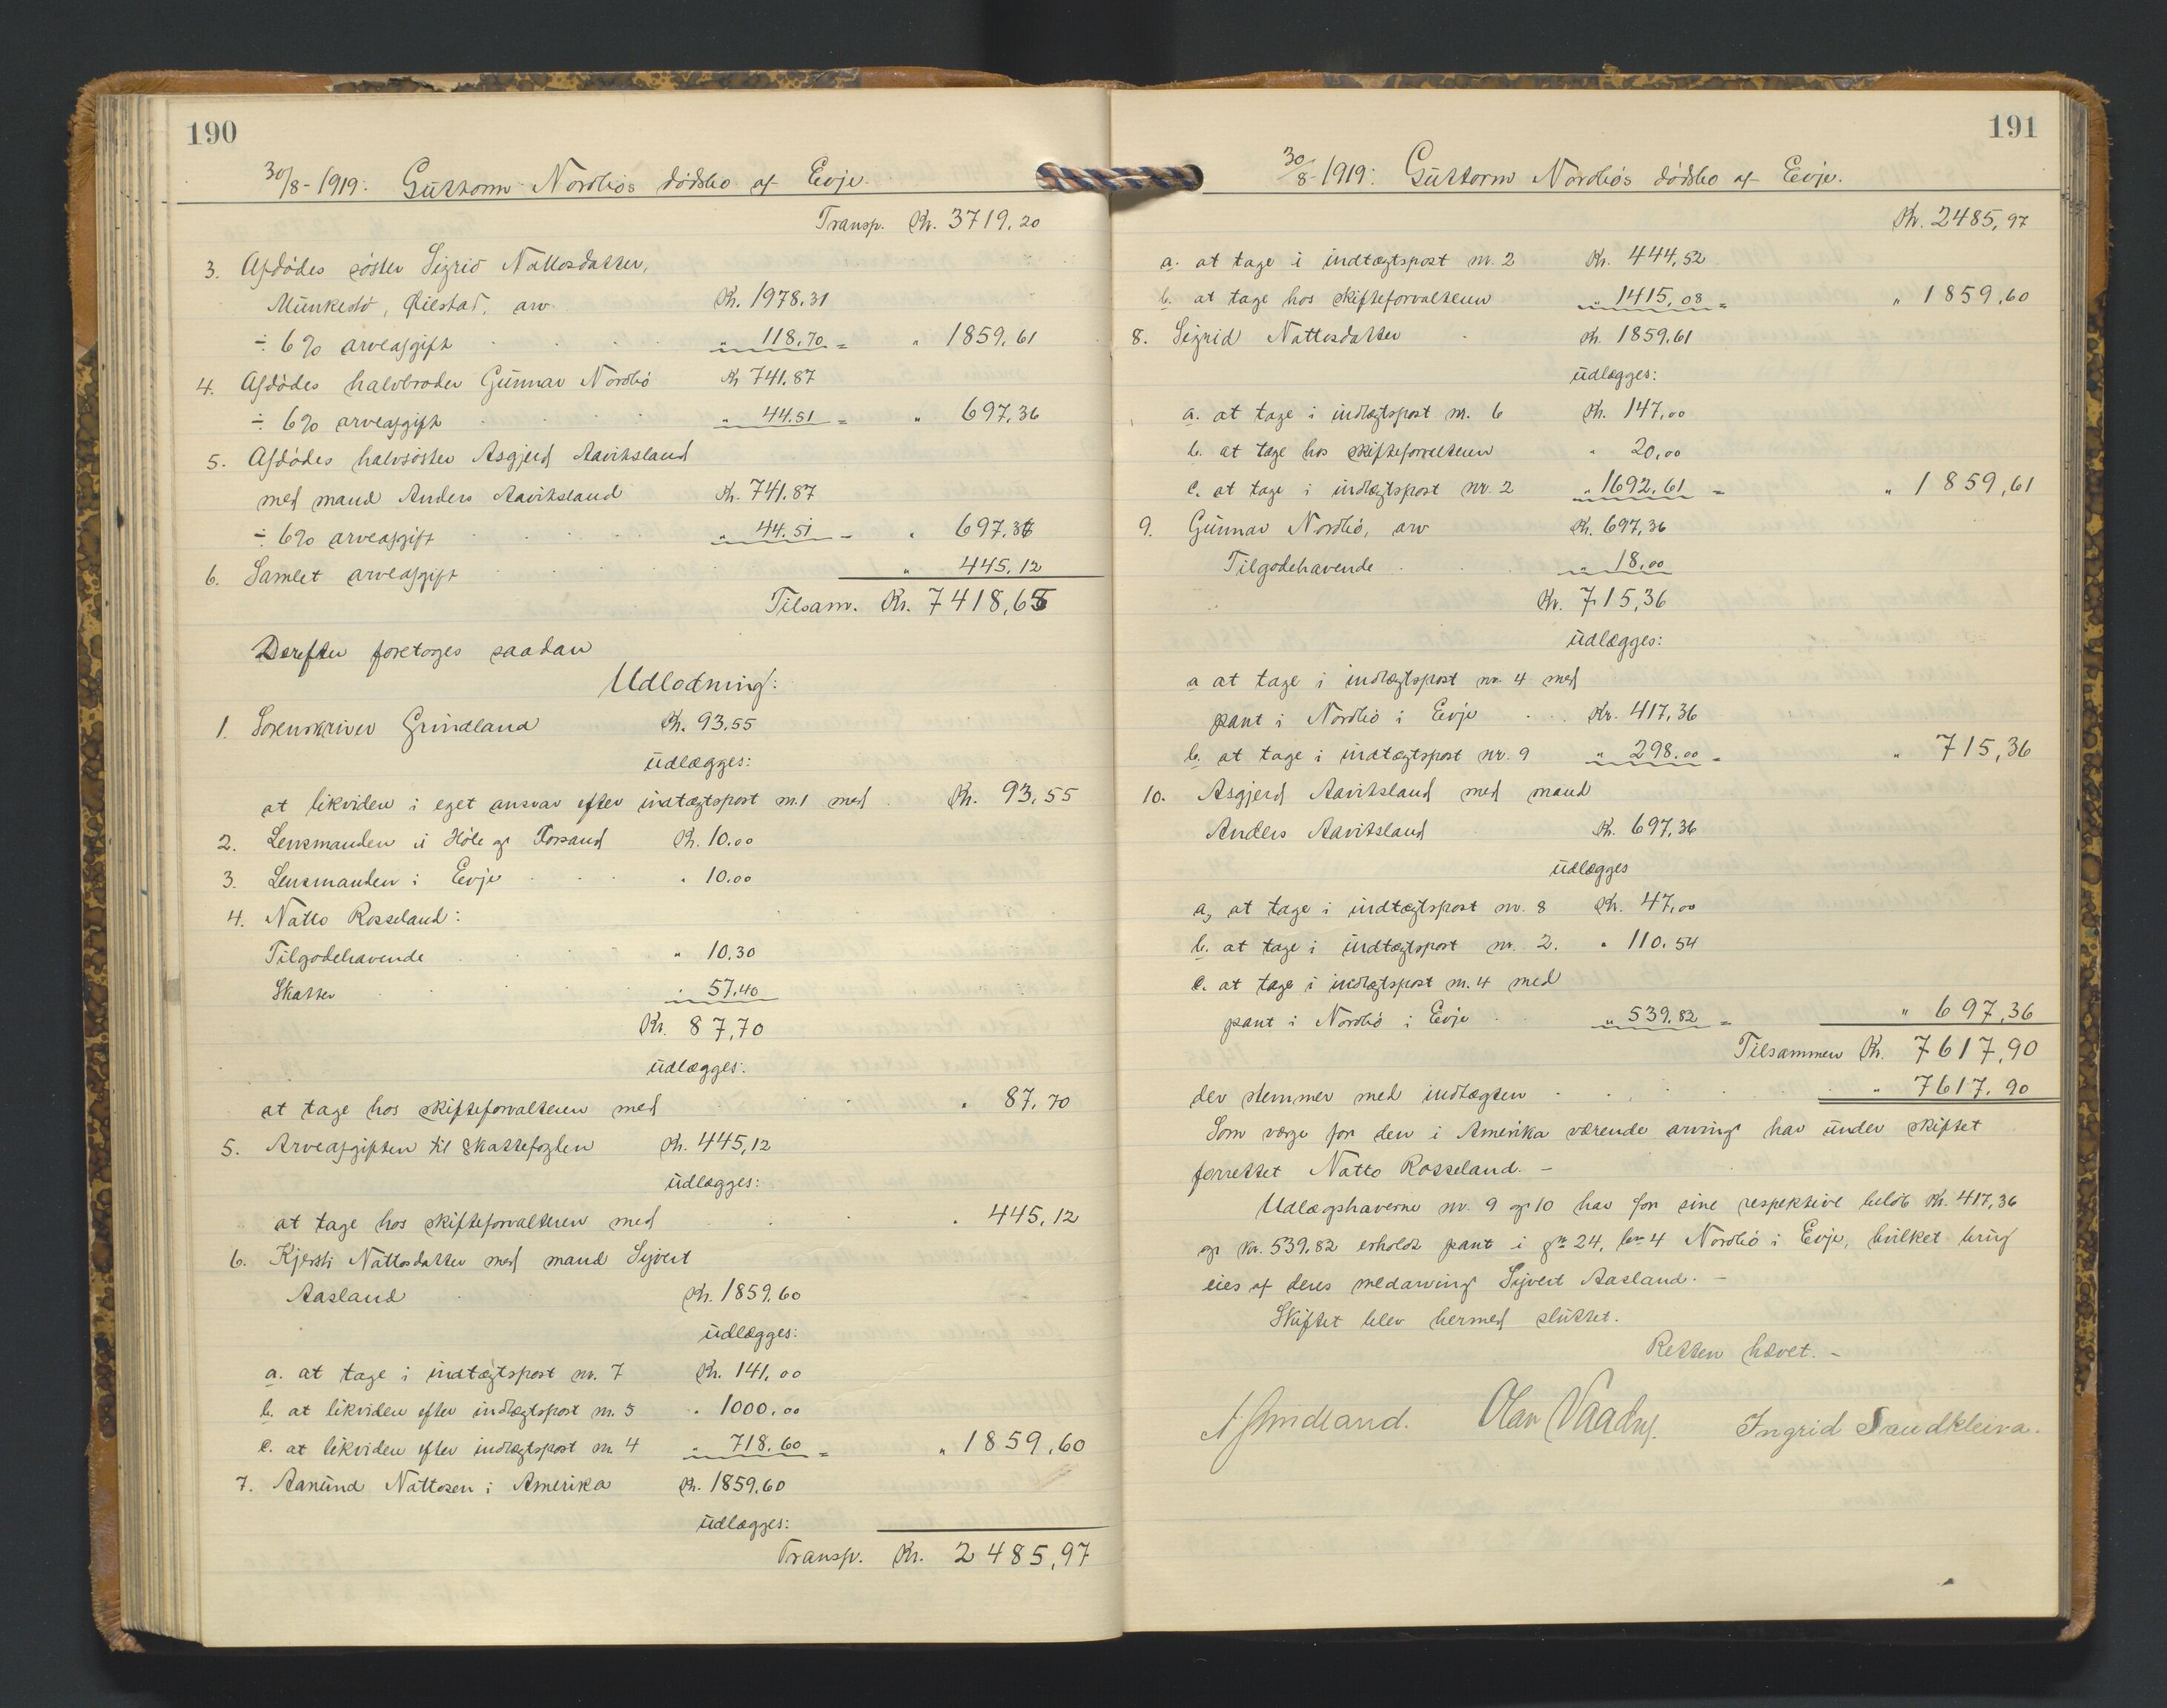 190
30/8-1919: Guttorm Nordbös dödsbo af Evje.
Transp. Kr. 3719,20
3. Afdödes söster Sigrid Nattosdatter,
Munkestö, Öiestad, arv Kr. 1978.31
÷ 6% arveafgift " 118,70 = " 1859,61
4. Afdödes halvbroder Gunnar Nordbö Kr 741.87
÷ 6% arveafgift " 44.51 = " 697,36
5. Afdödes halvsöster Asgjerd Aavitsland
med mand Anders Aavitsland Kr. 741.87
÷ 6% arveafgift " 44.51 = " 697.36
6. Samlet arveafgift " 445,12
Tilsam. Kr. 7418,65
Derefter foretoges saadan
Udlodning:
1. Sorenskriver Grindland Kr. 93,55
udlægges:
at likviden i eget ansvar efter indtægtspost nr. 1 med Kr. 93,55
2. Lensmanden i Höle og Forsand Kr. 10.00
3. Lensmanden i Evje " 10.00
4. Natto Rosseland:
Tilgodehavende " 10.30
Skatter " 57.40
Kr. 87,70
udlægges:
at tage hos skifteforvalteren med " 87,70
5. Arveafgiften til Skattefogden Kr. 445,12
udlægges:
at tage hos skifteforvalteren med " 445,12
6. Kjersti Nattosdatter med mand Sijvert
Aasland Kr. 1859,60
udlægges:
a. at tage i indtægtspost nr. 7 Kr. 141,00
b. at likviden efter indtægtspost nr. 5 " 1000,00
c. at likviden efter indtægtspost nr 4 " 718.60 = " 1859,60
7. Aanund Nattosen i Amerika Kr. 1859,60
udlægges:
Transp. Kr. 2485,97
191
30/8-1919: Guttorm Nordbös dödsbo af Evje.
Kr. 2485,97
a. at tage i indtægtspost nr. 2 Kr. 444,52
b. at tage hos skifteforvalteren " 1415,08 = " 1859,60
8. Sigrid Nattosdatter Kr. 1859,61
udlægges:
a. at tage i indtægtspost nr. 6 Kr. 147,00
b. at tage hos skifteforvalteren " 20,00
c. at tage i indtægtspost nr. 2 " 1692,61 = " 1859,61
9. Gunnar Nordbö, arv Kr. 697,36
Tilgodehavende " 18,00
Kr. 715,36
udlægges:
a at tage i indtægtspost nr. 4 med
pant i Nordbö i Evje Kr. 417,36
b. at tage i indtægtspost nr. 9 " 298.00 = " 715,36
10. Asgjerd Aavitsland med mand
Anders Aavitsland Kr. 697,36
udlægges
a, at tage i indtægtspost nr. 8 Kr. 47,00
b. at tage i indtægtspost nr. 2. " 110.54
c. at tage i indtægtspost nr. 4 med
pant i Nordbö i Evje " 539.82 = " 697,36
Tilsammen Kr. 7617,90
der stemmer med indtægten " 7617.90
Som værge for den i Amerika værende arving har under skiftet
forrettet Natto Rosseland. -
Udlægshaverne nr. 9 og 10 har for sine respektive belöb Kr. 417,36
og Kr. 539.82 erholdt pant i gnr 24, bnr 4 Nordbö i Evje, hvilket brug
eies af deres medarving Sijvert Aasland. -
Skiftet blev hermed sluttet.
Retten hævet. -
A Grindland. Olav Ingrid Sandkleiva.